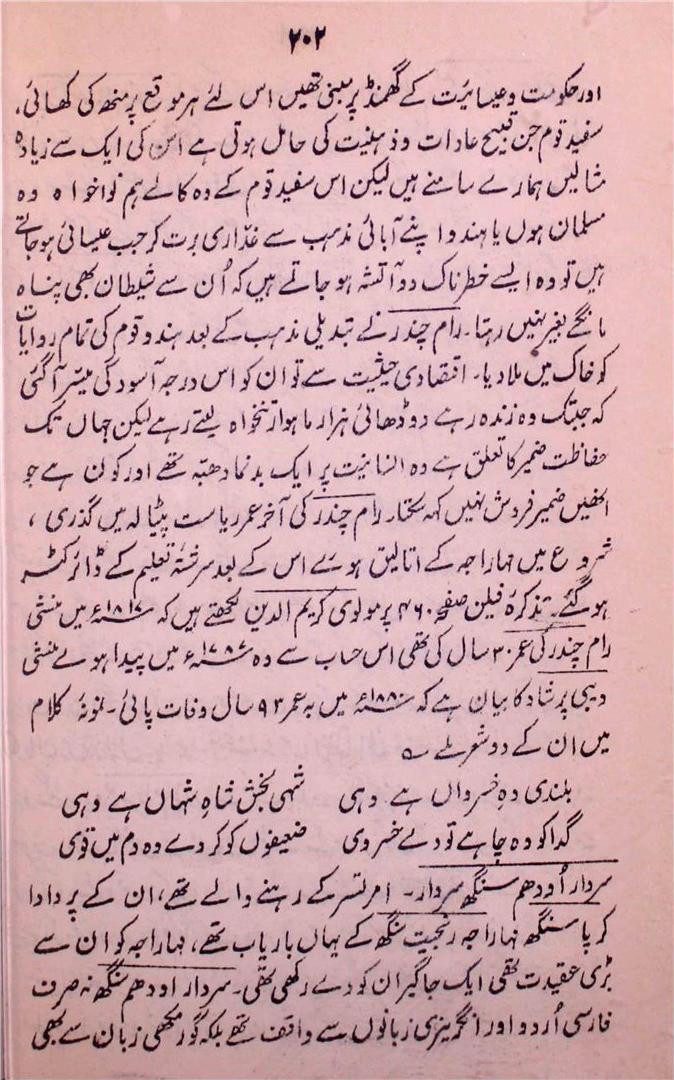 ۲۰۲
اور حکومت و عیسائیت کے گھمنڈ پر مبنی تھیں اس لئے ہر موقع پر منھ کی کھائی،
سفید قوم جن قبیح عادات و ذہنیت کی حامل ہوتی ہے اس کی ایک سے زیادہ
مثالیں ہمارے سامنے ہیں لیکن اس سفید قوم کے وہ کالے ہم نوا خواہ وہ
مسلمان ہوں یا ہندو اپنے آبائی مذہب سے غدّاری برت کر جب عیسائی ہو جاتے
ہیں تو وہ ایسے خطرناک دو آتشہ ہو جاتے ہیں کہ اُن سے شیطان بھی پناہ
مانگے بغیر نہیں رہتا۔ رام چندر نے تبدیلی مذہب کے بعد ہندو قوم کی تمام روایات
کو خاک میں ملا دیا۔ اقتصادی حیثیت سے تو ان کو اس درجہ آسودگی میسّر آگئی
کہ جبتک وہ زندہ رہے دو ڈھائی ہزار ماہوار تنخواہ لیتے رہے لیکن جہاں تک
حفاظت ضمیر کا تعلق ہے وہ انسانیت پر ایک بدنما دھبّہ تھے اور کون ہے جو
انھیں ضمیر فروش نہیں کہہ سکتا۔ رام چندر کی آخر عمر ریاست پٹیالہ میں گذری،
شروع میں مہاراجہ کے اتالیق ہوئے اس کے بعد سرشتۂ تعلیم کے ڈائرکٹر
ہو گئے۔ تذکرۂ فیلن صفحہ ۴۶۰ پر مولوی کریم الدین لکھتے ہیں کہ ۱۸۱۷ء میں منشی
رام چندر کی عمر ۳۰ سال کی تھی اس حساب سے وہ ۱۷۸۷ء میں پیدا ہوئے منشی
دیبی پرشاد کا بیان ہے کہ ۱۸۸۰ء میں بہ عمر ۹۳ سال وفات پائی۔ نمونۂ کلام
میں ان کے دو شعر ملے ؎
بلندی دہِ خسرواں ہے وہی شہی بخش شاہِ شہاں ہے وہی
گدا کو وہ چاہے تو دے خسروی ضعیفوں کو کر دے وہ دم میں قوی
سردار اُودھم سنگھ سردار۔ امرتسر کے رہنے والے تھے، ان کے پر دادا
کرپا سنگھ مہاراجہ رنجیت سنگھ کے یہاں باریاب تھے، مہاراجہ کو ان سے
بڑی عقیدت تھی ایک جاگیر ان کو دے رکھی تھی۔ سردار اودھم سنگھ نہ صرف
فارسی اُردو اور انگریزی زبانوں سے واقف تھے بلکہ گورمکھی زبان سے بھی